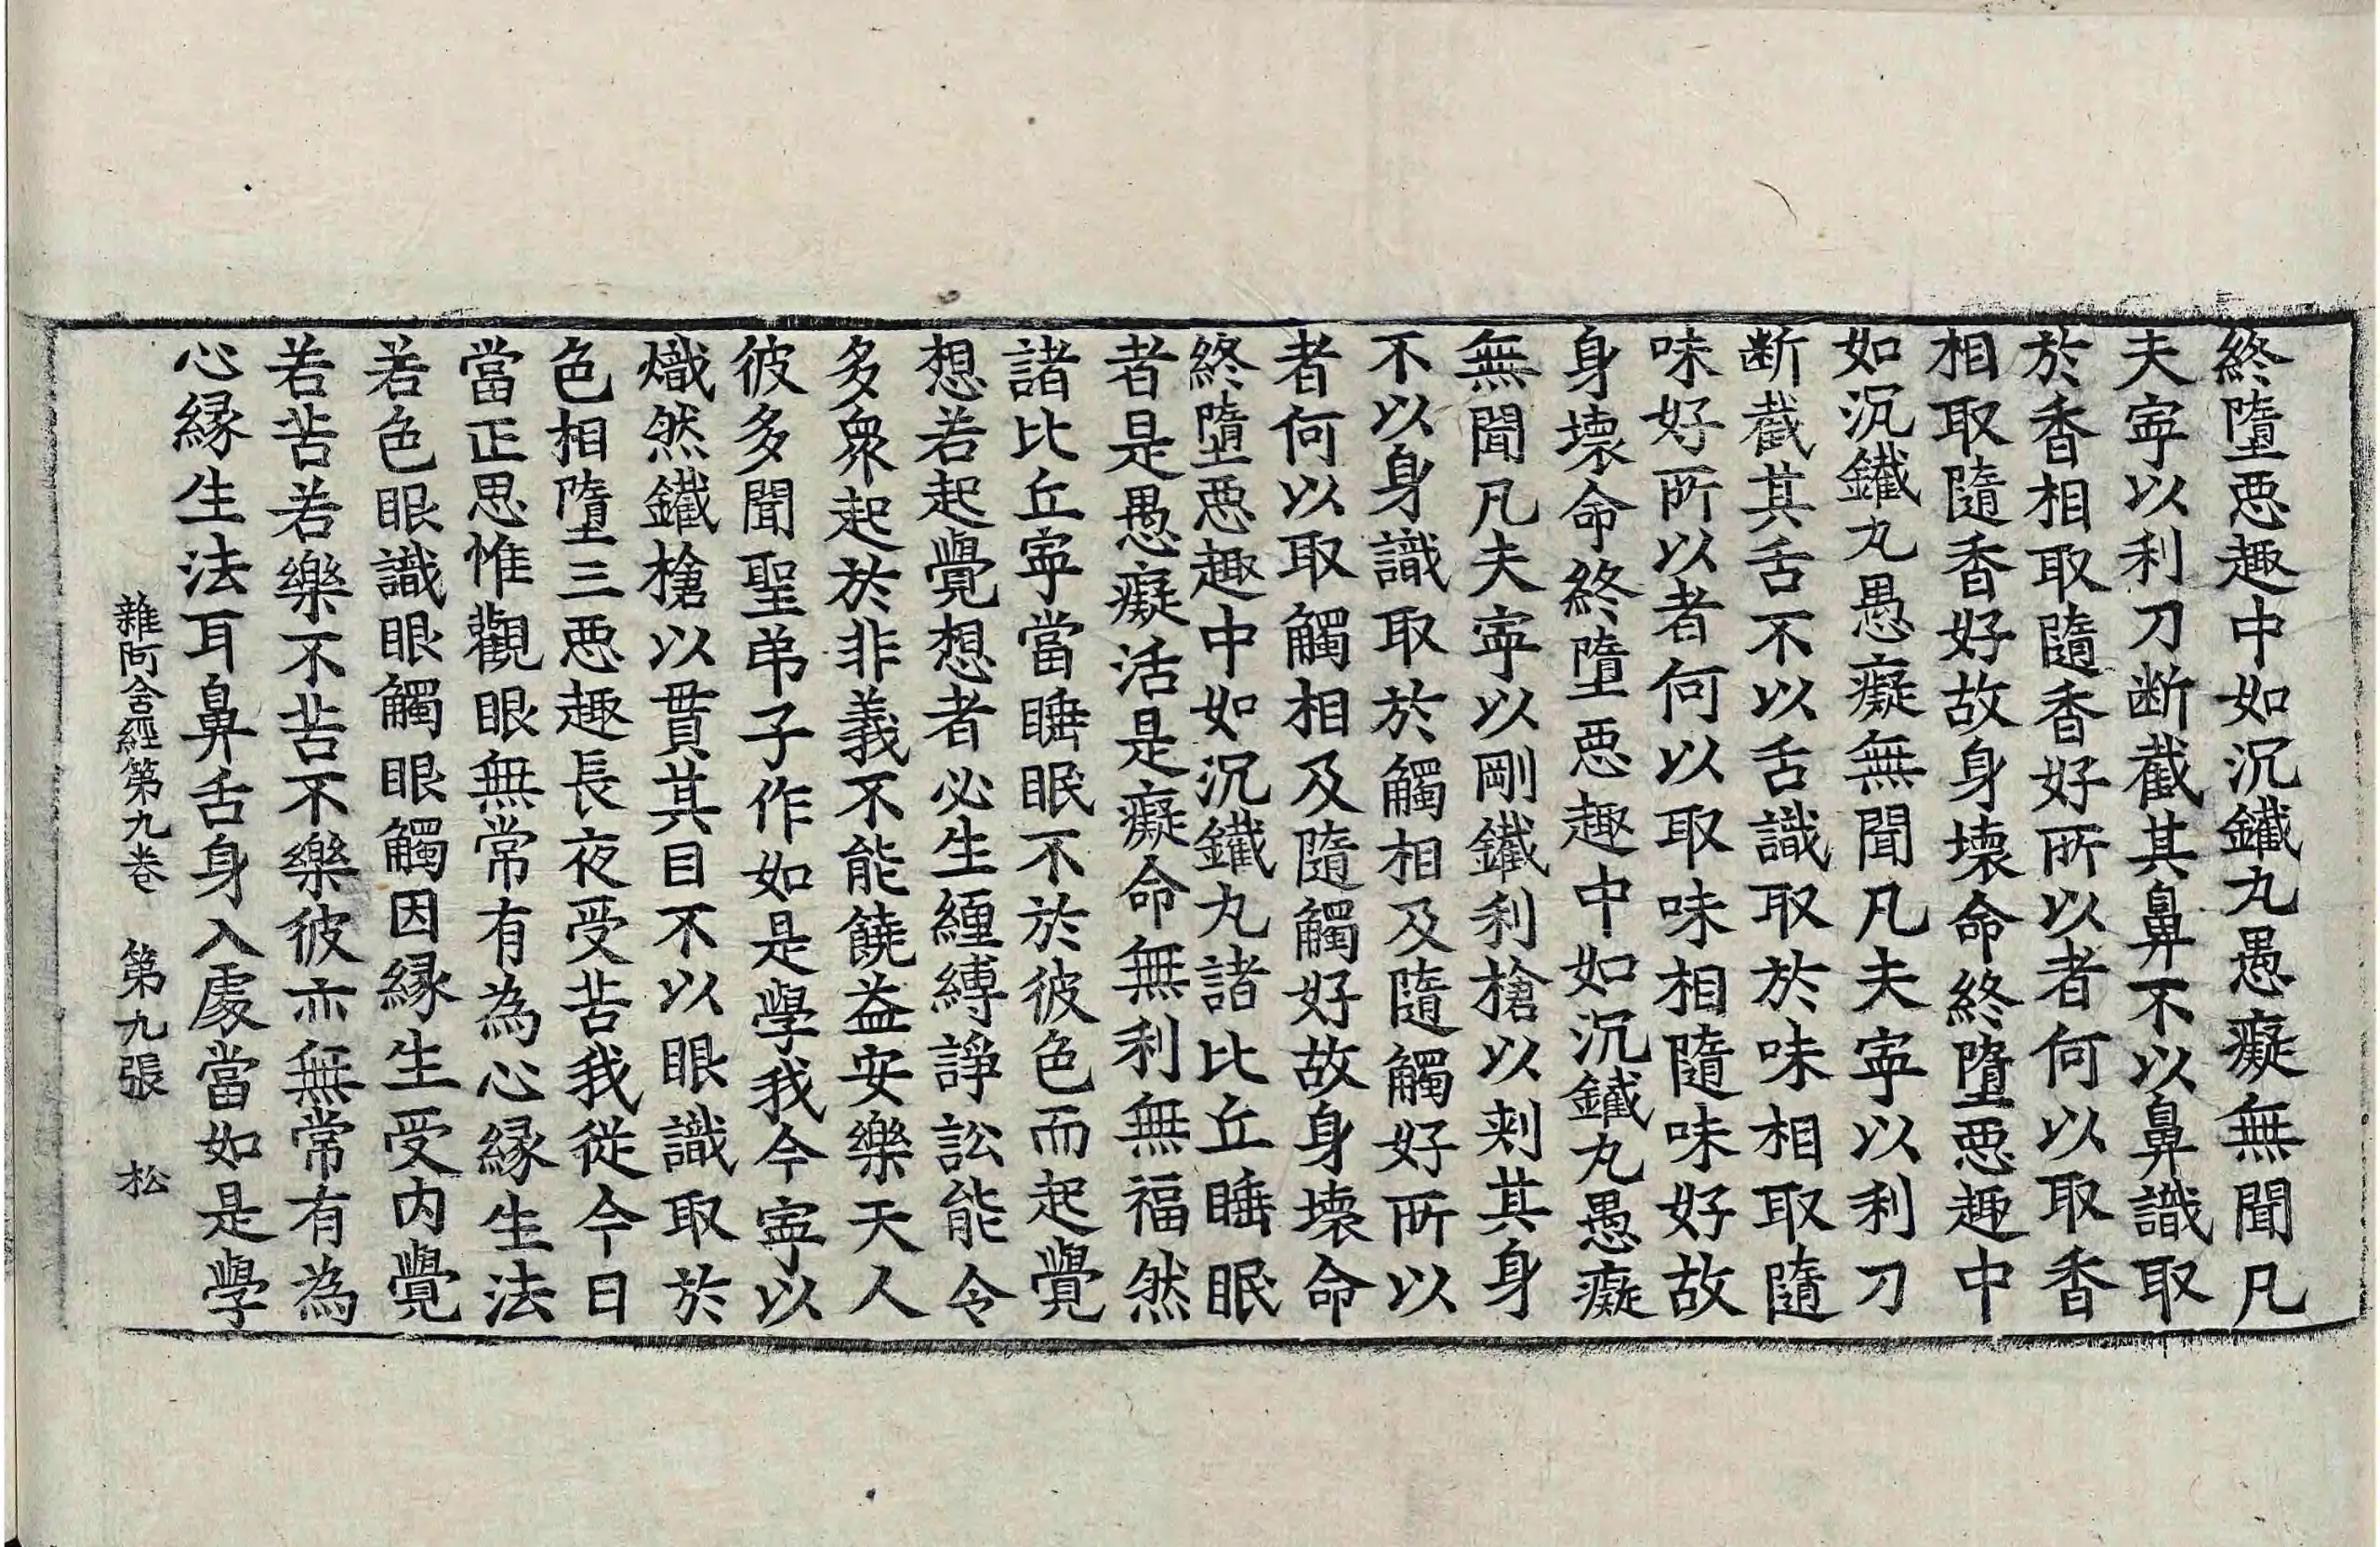 終墮惡趣中如沉鐵丸愚癡無聞凡
夫寧以利刀断截其鼻不以鼻識取
於香相取隨香好所以者何以取香
相取隨香好故身壞命終墮惡趣中
如沉鐵丸愚癡無聞凡夫寧以利刀
断截其舌不以舌識取於味相取隨
味好所以者何以取味相隨味好故
身壞命終墮惡趣中如沉鐵丸愚癡
無聞凡夫寧以剛鐵利槍以刾其身
不以身識取於觸相及隨觸好所以
者何以取觸相及隨觸好故身壞命
終墮惡趣中如沉鐵丸諸比丘睡眠
者是愚癡活是癡命無利無福然
諸比丘寧當睡眠不於彼色而起覺
想若起覺想者必生纏縛諍訟能令
多衆起於非義不能饒益安樂天人
彼多聞聖弟子作如是學我今寧以
熾然鐵槍以貫其目不以眼識取於
色相墮三惡趣長夜受苦我從今日
當正思惟觀眼無常有為心縁生法
若色眼識眼觸眼觸因縁生受内覺
若苦若樂不苦不樂彼亦無常有為
心縁生法耳鼻舌身入處當如是學
雜阿含經第九卷 第九張 松